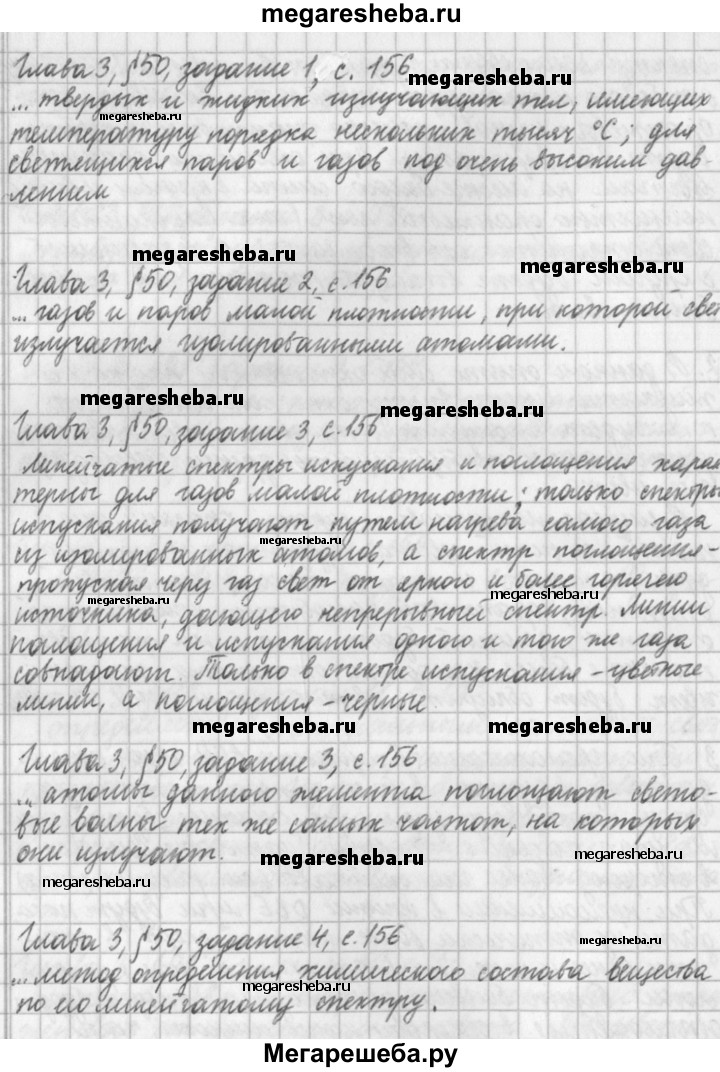 megaresheba.ru
Глава 3, §50, задание 1, с. 156
megaresheba.ru
... твердых и жидких излучающих тел, имеющих
megaresheba.ru
температуру порядка нескольких тысяч °C; для
светящихся паров и газов под очень высоким дав-
лением
megaresheba.ru
megaresheba.ru
Глава 3, §50, задание 2, с. 156
... газов и паров малой плотности, при которой све
излучается изолированными атомами.
megaresheba.ru
megaresheba.ru
Глава 3, §50, задание 3, с. 156
Линейчатые спектры испускания и поглощения харак
терны для газов малой плотности; только спектры
испускания получают путем нагрева самого газа
megaresheba.ru
из изолированных атомов, а спектр поглощения-
пропуская через газ свет от яркого и более горячего
megaresheba.ru
источника, дающего непрерывный спектр. Линии
поглощения и испускания одного и того же газа
совпадают. Только в спектре испускания - цветные
линии, а поглощения - черные.
megaresheba.ru
megaresheba.ru
Глава 3, §50, задание 3, с. 156
... атомы данного элемента поглощают свето-
вые волны тех же самых частот, на которых
они излучают.
megaresheba.ru
megaresheba.ru
megaresheba.ru
Глава 3, §50, задание 4, с. 156
megaresheba.ru
... метод определения химического состава вещества
megaresheba.ru
по его линейчатому спектру.
Мегарешеба.ру